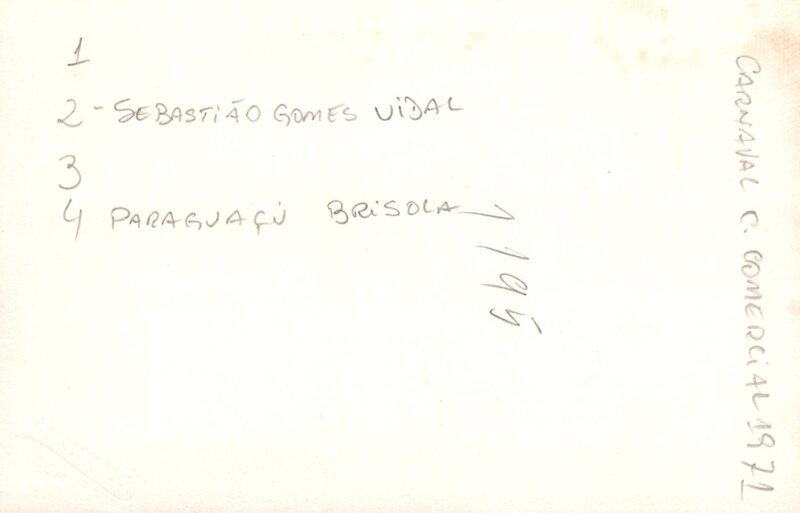 1
2 - SEBASTIÃO GOMES VIDAL
3
4 PARAGUAÇÚ BRISOLA
195
CARNAVAL C. COMERCIAL 1971